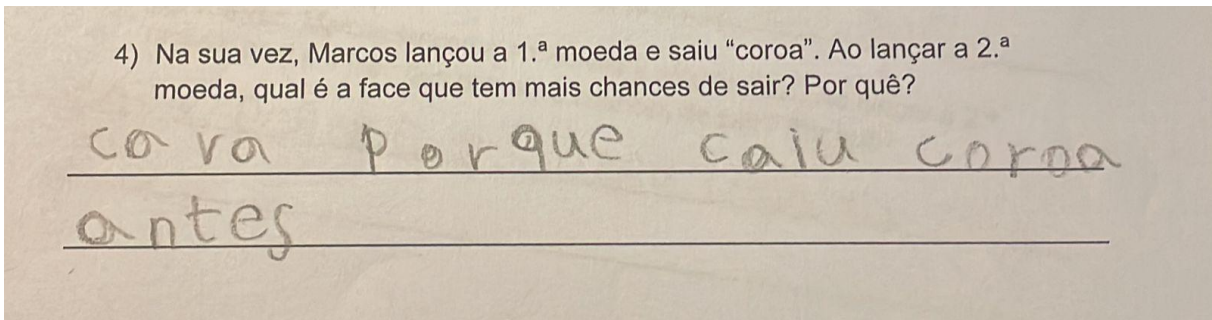 4) Na sua vez, Marcos lançou a 1.ª moeda e saiu “coroa”. Ao lançar a 2.ª
moeda, qual é a face que tem mais chances de sair? Por quê?
cara porque caiu coroa
antes